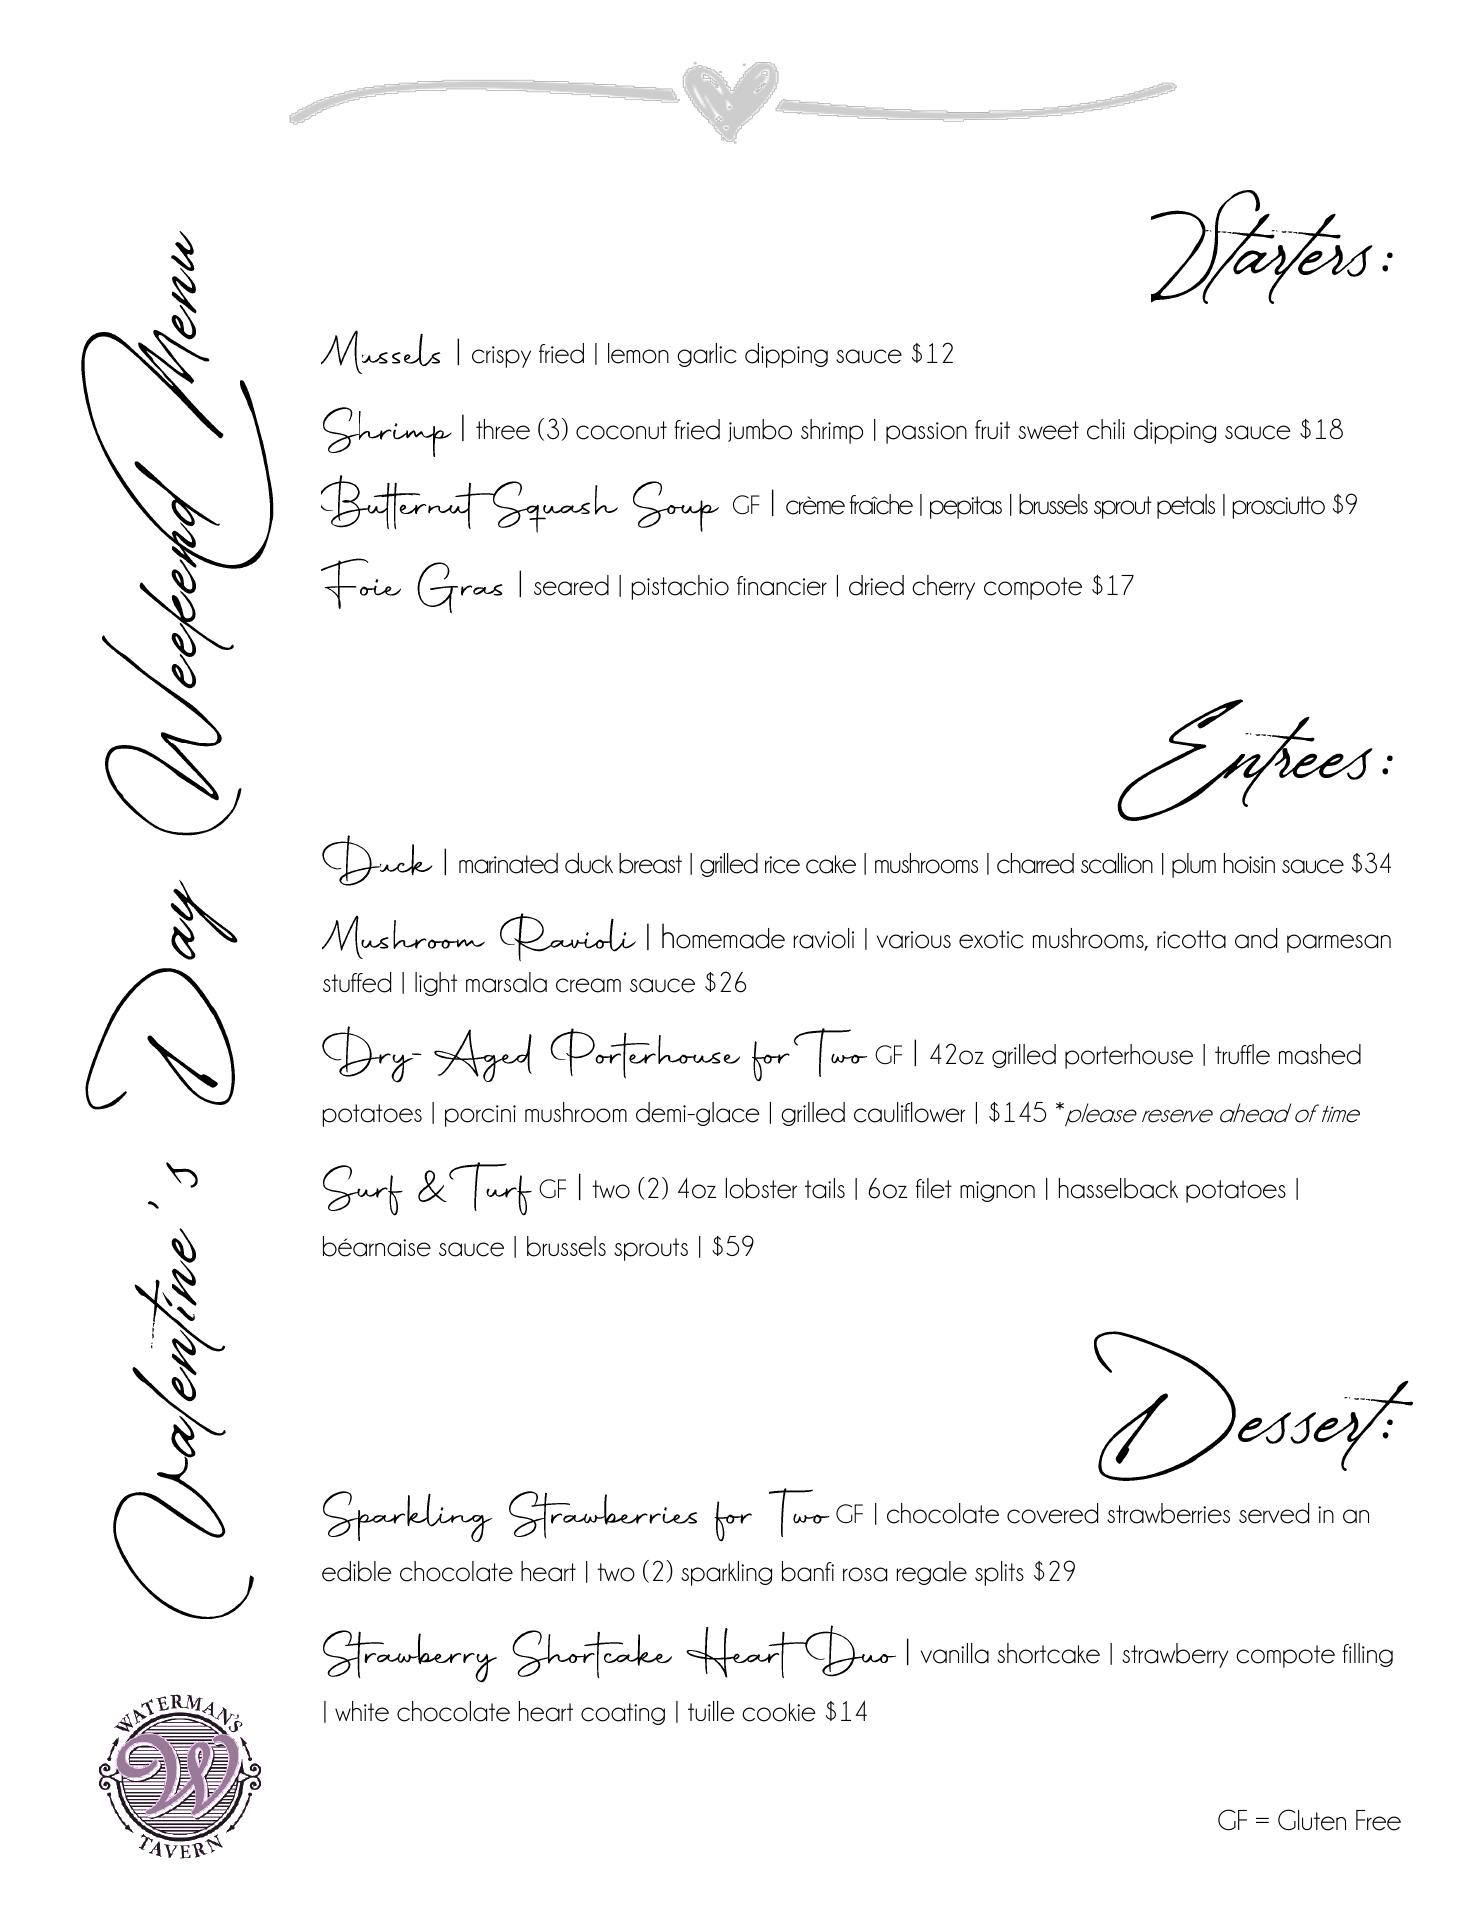 Valentine's Day Weekend Menu
Starters:
Mussels | crispy fried | lemon garlic dipping sauce $12
Shrimp | three (3) coconut fried jumbo shrimp | passion fruit sweet chili dipping sauce $18
Butternut Squash Soup GF | crème fraîche | pepitas | brussels sprout petals | prosciutto $9
Foie Gras | seared | pistachio financier | dried cherry compote $17
Entrees:
Duck | marinated duck breast | grilled rice cake | mushrooms | charred scallion | plum hoisin sauce $34
Mushroom Ravioli | homemade ravioli | various exotic mushrooms, ricotta and parmesan
stuffed | light marsala cream sauce $26
Dry-Aged Porterhouse for Two GF | 42oz grilled porterhouse | truffle mashed
potatoes | porcini mushroom demi-glace | grilled cauliflower | $145 *please reserve ahead of time
Surf & Turf GF | two (2) 4oz lobster tails | 6oz filet mignon | hasselback potatoes |
béarnaise sauce | brussels sprouts | $59
Dessert:
Sparkling Strawberries for Two GF | chocolate covered strawberries served in an
edible chocolate heart | two (2) sparkling banfi rosa regale splits $29
Strawberry Shortcake Heart Duo | vanilla shortcake | strawberry compote filling
| white chocolate heart coating | tuille cookie $14
WATERMAN'S
W
TAVERN
GF = Gluten Free